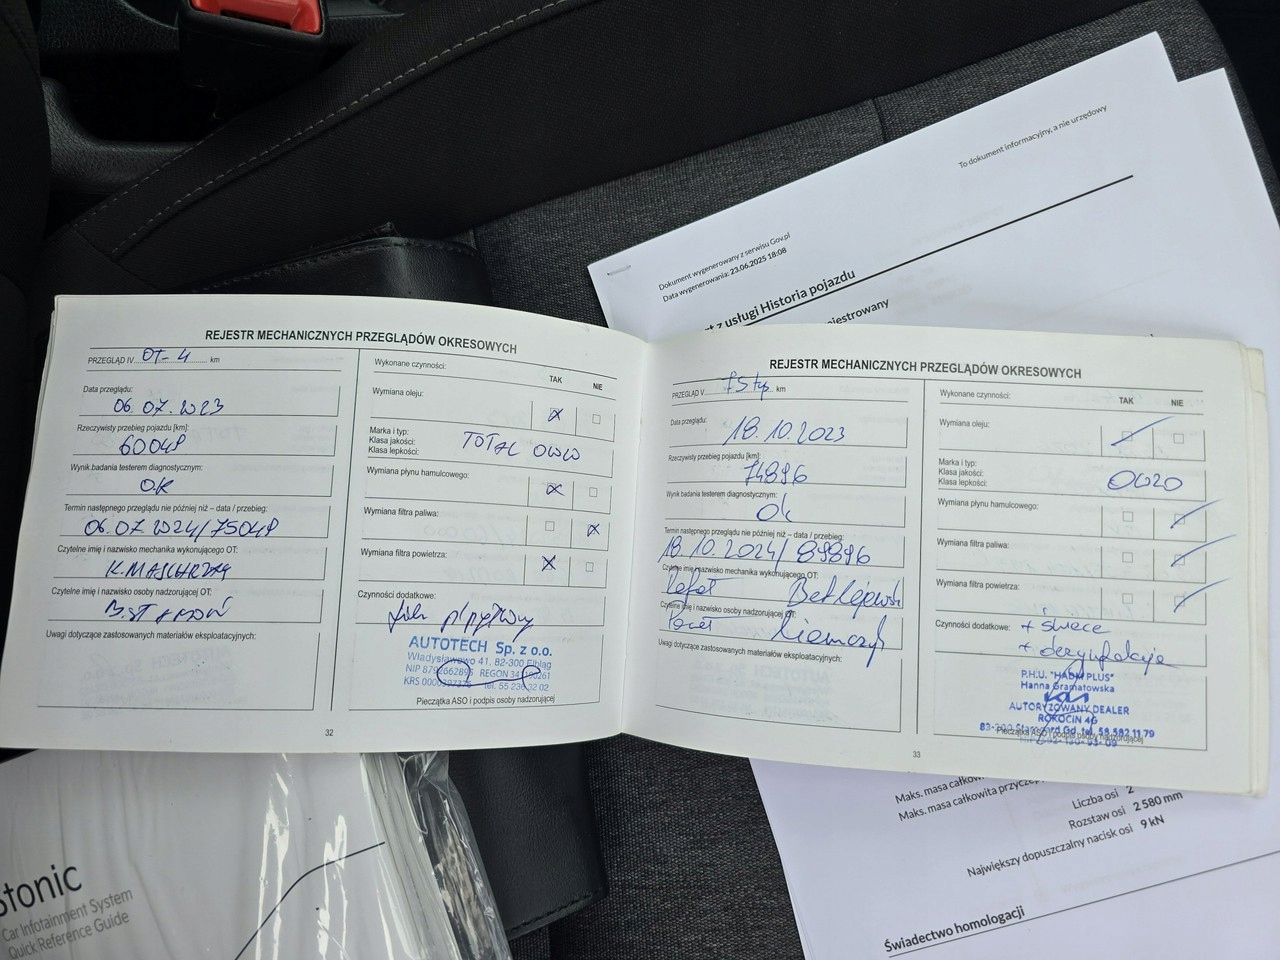 To dokument informacyjny, a nie urzędowy
Dokument wygenerowany z serwisu Gov.pl
Data wygenerowania: 23.06.2025 18:08
z usługi Historia pojazdu
REJESTR MECHANICZNYCH PRZEGLĄDÓW OKRESOWYCH
PRZEGLĄD IV OT-4 km
Data przeglądu:
06.07.2023
Rzeczywisty przebieg pojazdu [km]:
Wynik badania testerem diagnostycznym:
OK
Termin następnego przeglądu nie później niż – data / przebieg:
Czytelne imię i nazwisko mechanika wykonującego OT:
Czytelne imię i nazwisko osoby nadzorującej OT:
Uwagi dotyczące zastosowanych materiałów eksploatacyjnych:
32
Wykonane czynności:
TAK NIE
Wymiana oleju:
Marka i typ:
Klasa jakości:
Klasa lepkości:
TOTAL 0W20
Wymiana płynu hamulcowego:
Wymiana filtra paliwa:
Wymiana filtra powietrza:
Czynności dodatkowe:
AUTOTECH Sp. z o.o.
Władysławowo 41, 82-300 Elbląg
Pieczątka ASO i podpis osoby nadzorującej
REJESTR MECHANICZNYCH PRZEGLĄDÓW OKRESOWYCH
PRZEGLĄD V 75 tyś. km
Data przeglądu:
18.10.2023
Rzeczywisty przebieg pojazdu [km]:
74896
Wynik badania testerem diagnostycznym:
Ok
Termin następnego przeglądu nie później niż – data / przebieg:
18.10.2024/ 89896
Czytelne imię i nazwisko mechanika wykonującego OT:
Rafał
Czytelne imię i nazwisko osoby nadzorującej OT:
Uwagi dotyczące zastosowanych materiałów eksploatacyjnych:
33
Wykonane czynności:
TAK NIE
Wymiana oleju:
Marka i typ:
Klasa jakości:
Klasa lepkości:
0W20
Wymiana płynu hamulcowego:
Wymiana filtra paliwa:
Wymiana filtra powietrza:
Czynności dodatkowe: + świece
+ dezynfekcja
P.H.U. "HADM PLUS"
Hanna Gramatowska
AUTORYZOWANY DEALER
ROKOCIN 4G
Pieczątka ASO i podpis osoby nadzorującej
Maks. masa całkow
Maks. masa całkowita przyczep
Liczba osi 2
Rozstaw osi 2 580 mm
Największy dopuszczalny nacisk osi 9 kN
Świadectwo homologacji
Stonic
Car Infotainment System
Quick Reference Guide